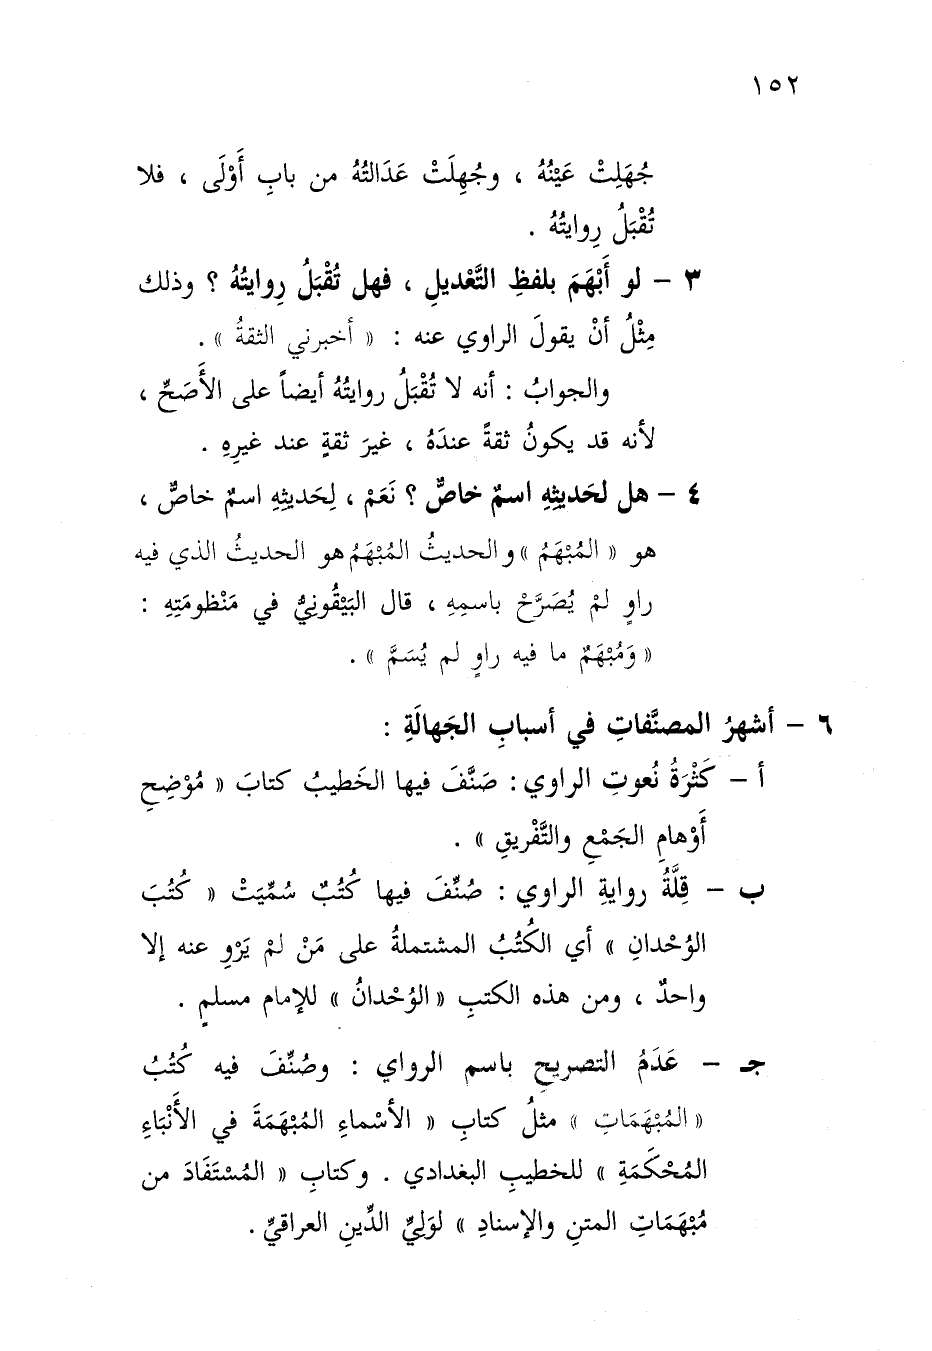 ١٥٢
جُهِلَتْ عَيْنُهُ ، وجُهِلَتْ عَدَالتُهُ من بابِ أَوْلَى ، فلا
تُقْبَلُ رِوايتُهُ .
٣ – لو أَبْهَمَ بلفظِ التَّعْديلِ ، فهل تُقْبَلُ رِوايتُهُ ؟ وذلك
مِثْلُ أنْ يقولَ الراوي عنه : « أخبرني الثقةُ » .
والجوابُ : أنه لا تُقْبَلُ روايتُهُ أيضاً على الأَصَحِّ ،
لأنه قد يكونُ ثقةً عندَهُ ، غيرَ ثقةٍ عند غيرِهِ .
٤ – هل لحَديثِهِ اسمٌ خاصٌّ ؟ نَعَمْ ، لِحَديثِهِ اسمٌ خاصٌّ ،
هو « المُبْهَمُ » والحديثُ المُبْهَمُ هو الحديثُ الذي فيه
راوٍ لمْ يُصَرَّحْ باسمِهِ ، قال البَيْقُونِيُّ في مَنْظومَتِهِ :
« وَمُبْهَمٌ ما فيه راوٍ لم يُسَمَّ » .
٦ – أشهرُ المصنَّفاتِ في أسبابِ الجَهالَةِ :
أ – كَثْرَةُ نُعوتِ الراوي : صَنَّفَ فيها الخَطيبُ كتابَ « مُوْضِحِ
أَوْهامِ الجَمْعِ والتَّفْريقِ » .
ب – قِلَّةُ روايةِ الراوي : صُنِّفَ فيها كُتُبٌ سُمِّيَتْ « كُتُبَ
الوُحْدانِ » أي الكُتُبُ المشتملةُ على مَنْ لمْ يَرْوِ عنه إلا
واحدٌ ، ومن هذه الكتبِ « الوُحْدانُ » للإمام مسلمٍ .
جـ – عَدَمُ التصريحِ باسم الرواي : وصُنِّفَ فيه كُتُبُ
« المُبْهَمَاتِ » مثلُ كتابِ « الأسْماءِ المُبْهَمَةَ في الأَنْبَاءِ
المُحْكَمَةِ » للخطيبِ البغدادي . وكتابِ « المُسْتَفَادَ من
مُبْهَمَاتِ المتنِ والإسنادِ » لوَلِيِّ الدِّينِ العراقيِّ .